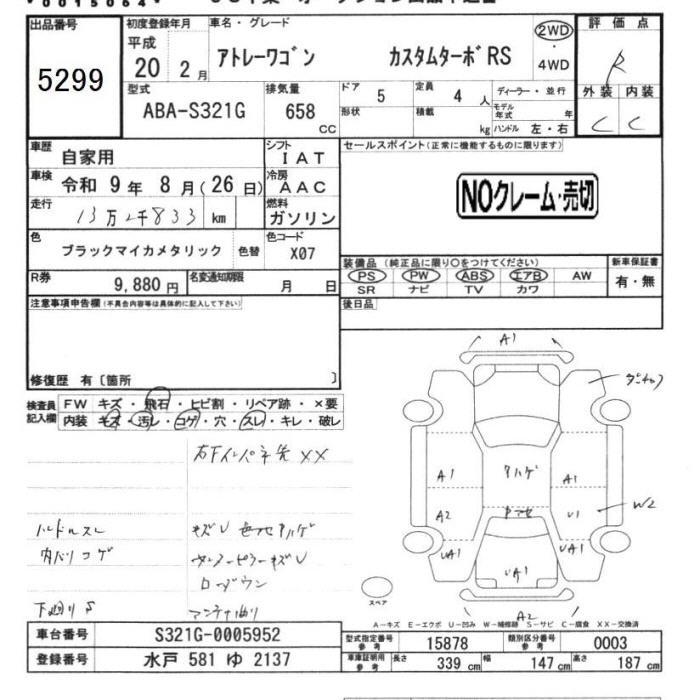 出品番号
5299
初度登録年月
平成
20 2月
車名・グレード
アトレーワゴン カスタムターボRS
2WD
・
4WD
評価点
R
外装 内装
C C
型式
ABA-S321G
排気量
658
cc
ドア
5
形状
定員
4 人
積載
kg
ディーラー・並行
モデル年式 年
ハンドル 左・右
車歴
自家用
シフト
IAT
車検
令和 9年 8月(26日)
冷房
AAC
走行
13万 4千833 km
燃料
ガソリン
色
ブラックマイカメタリック 色替
色コード
X07
R券
9,880円
名変通知期限
月 日
セールスポイント(正常に機能するものに限ります)
NOクレーム・売切
装備品(純正品に限り○をつけてください)
PS PW ABS エアB AW
SR ナビ TV カワ
新車保証書
有・無
後日品
注意事項申告欄(不具合内容等は具体的に記入して下さい)
修復歴 有〔箇所 〕
検査員記入欄
FW キズ・飛石・ヒビ割・リペア跡・×要
内装 キズ・汚レ・コゲ・穴・スレ・キレ・破レ
右下インパネ先 XX
ハンドルスレ
内バリコゲ
下廻りS
キズU 色アセハゲ
センターピラーキズU
ロ-ダウン
アンテナ曲り
A1
A1
A2
UA1
A1
U1
UA1
W2
UA1
A2
スペア
A-キズ E-エクボ U-凹み W-補修跡 S-サビ C-腐食 XX-交換済
車台番号 S321G-0005952
登録番号 水戸 581 ゆ 2137
型式指定番号 参考 15878
類別区分番号 参考 0003
車庫証明用 参考 長さ 339 cm 幅 147 cm 高さ 187 cm